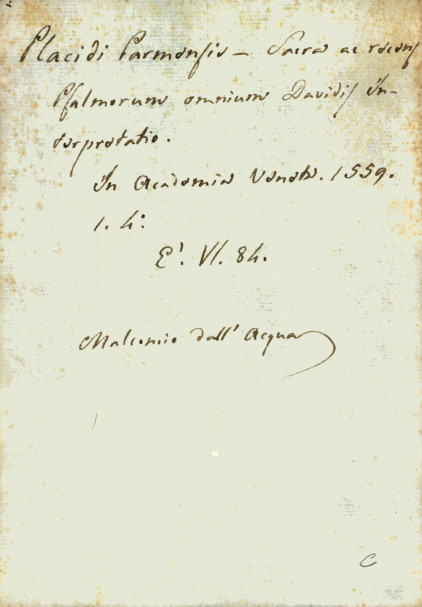 Placidi Parmensis – Sacra ac recens
Psalmorum omnium Davidis in-
terpretatio.
In Academia Veneta. 1559.
1. 4:
E'. VI. 84.
Malconcio dall' Acqua
C